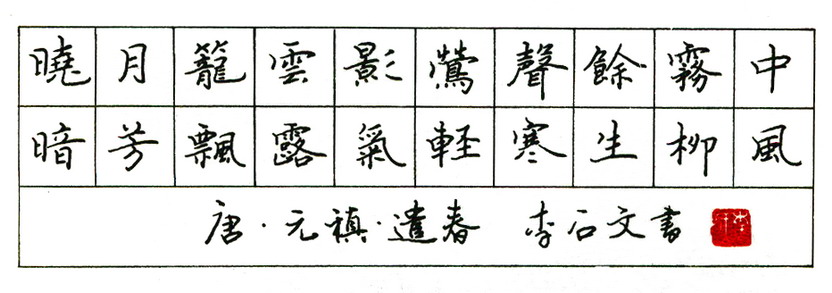 曉月籠雲影鶯聲餘霧中
暗芳飄露氣軽寒生柳風
唐·元禛·遣春 李石文書